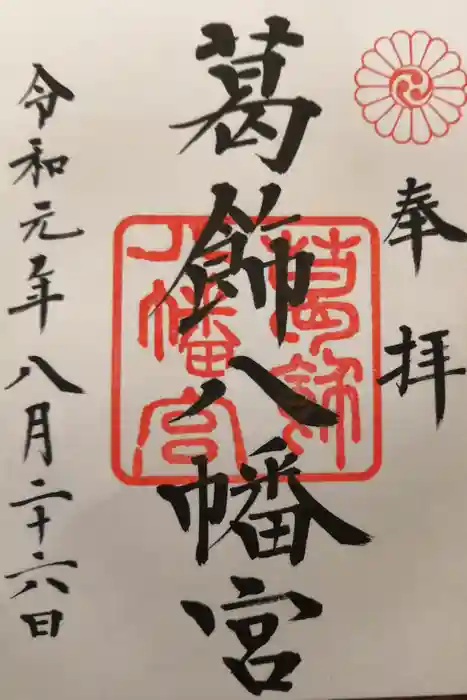 奉拝
葛飾八幡宮
葛飾
八幡宮
令和元年八月二十六日